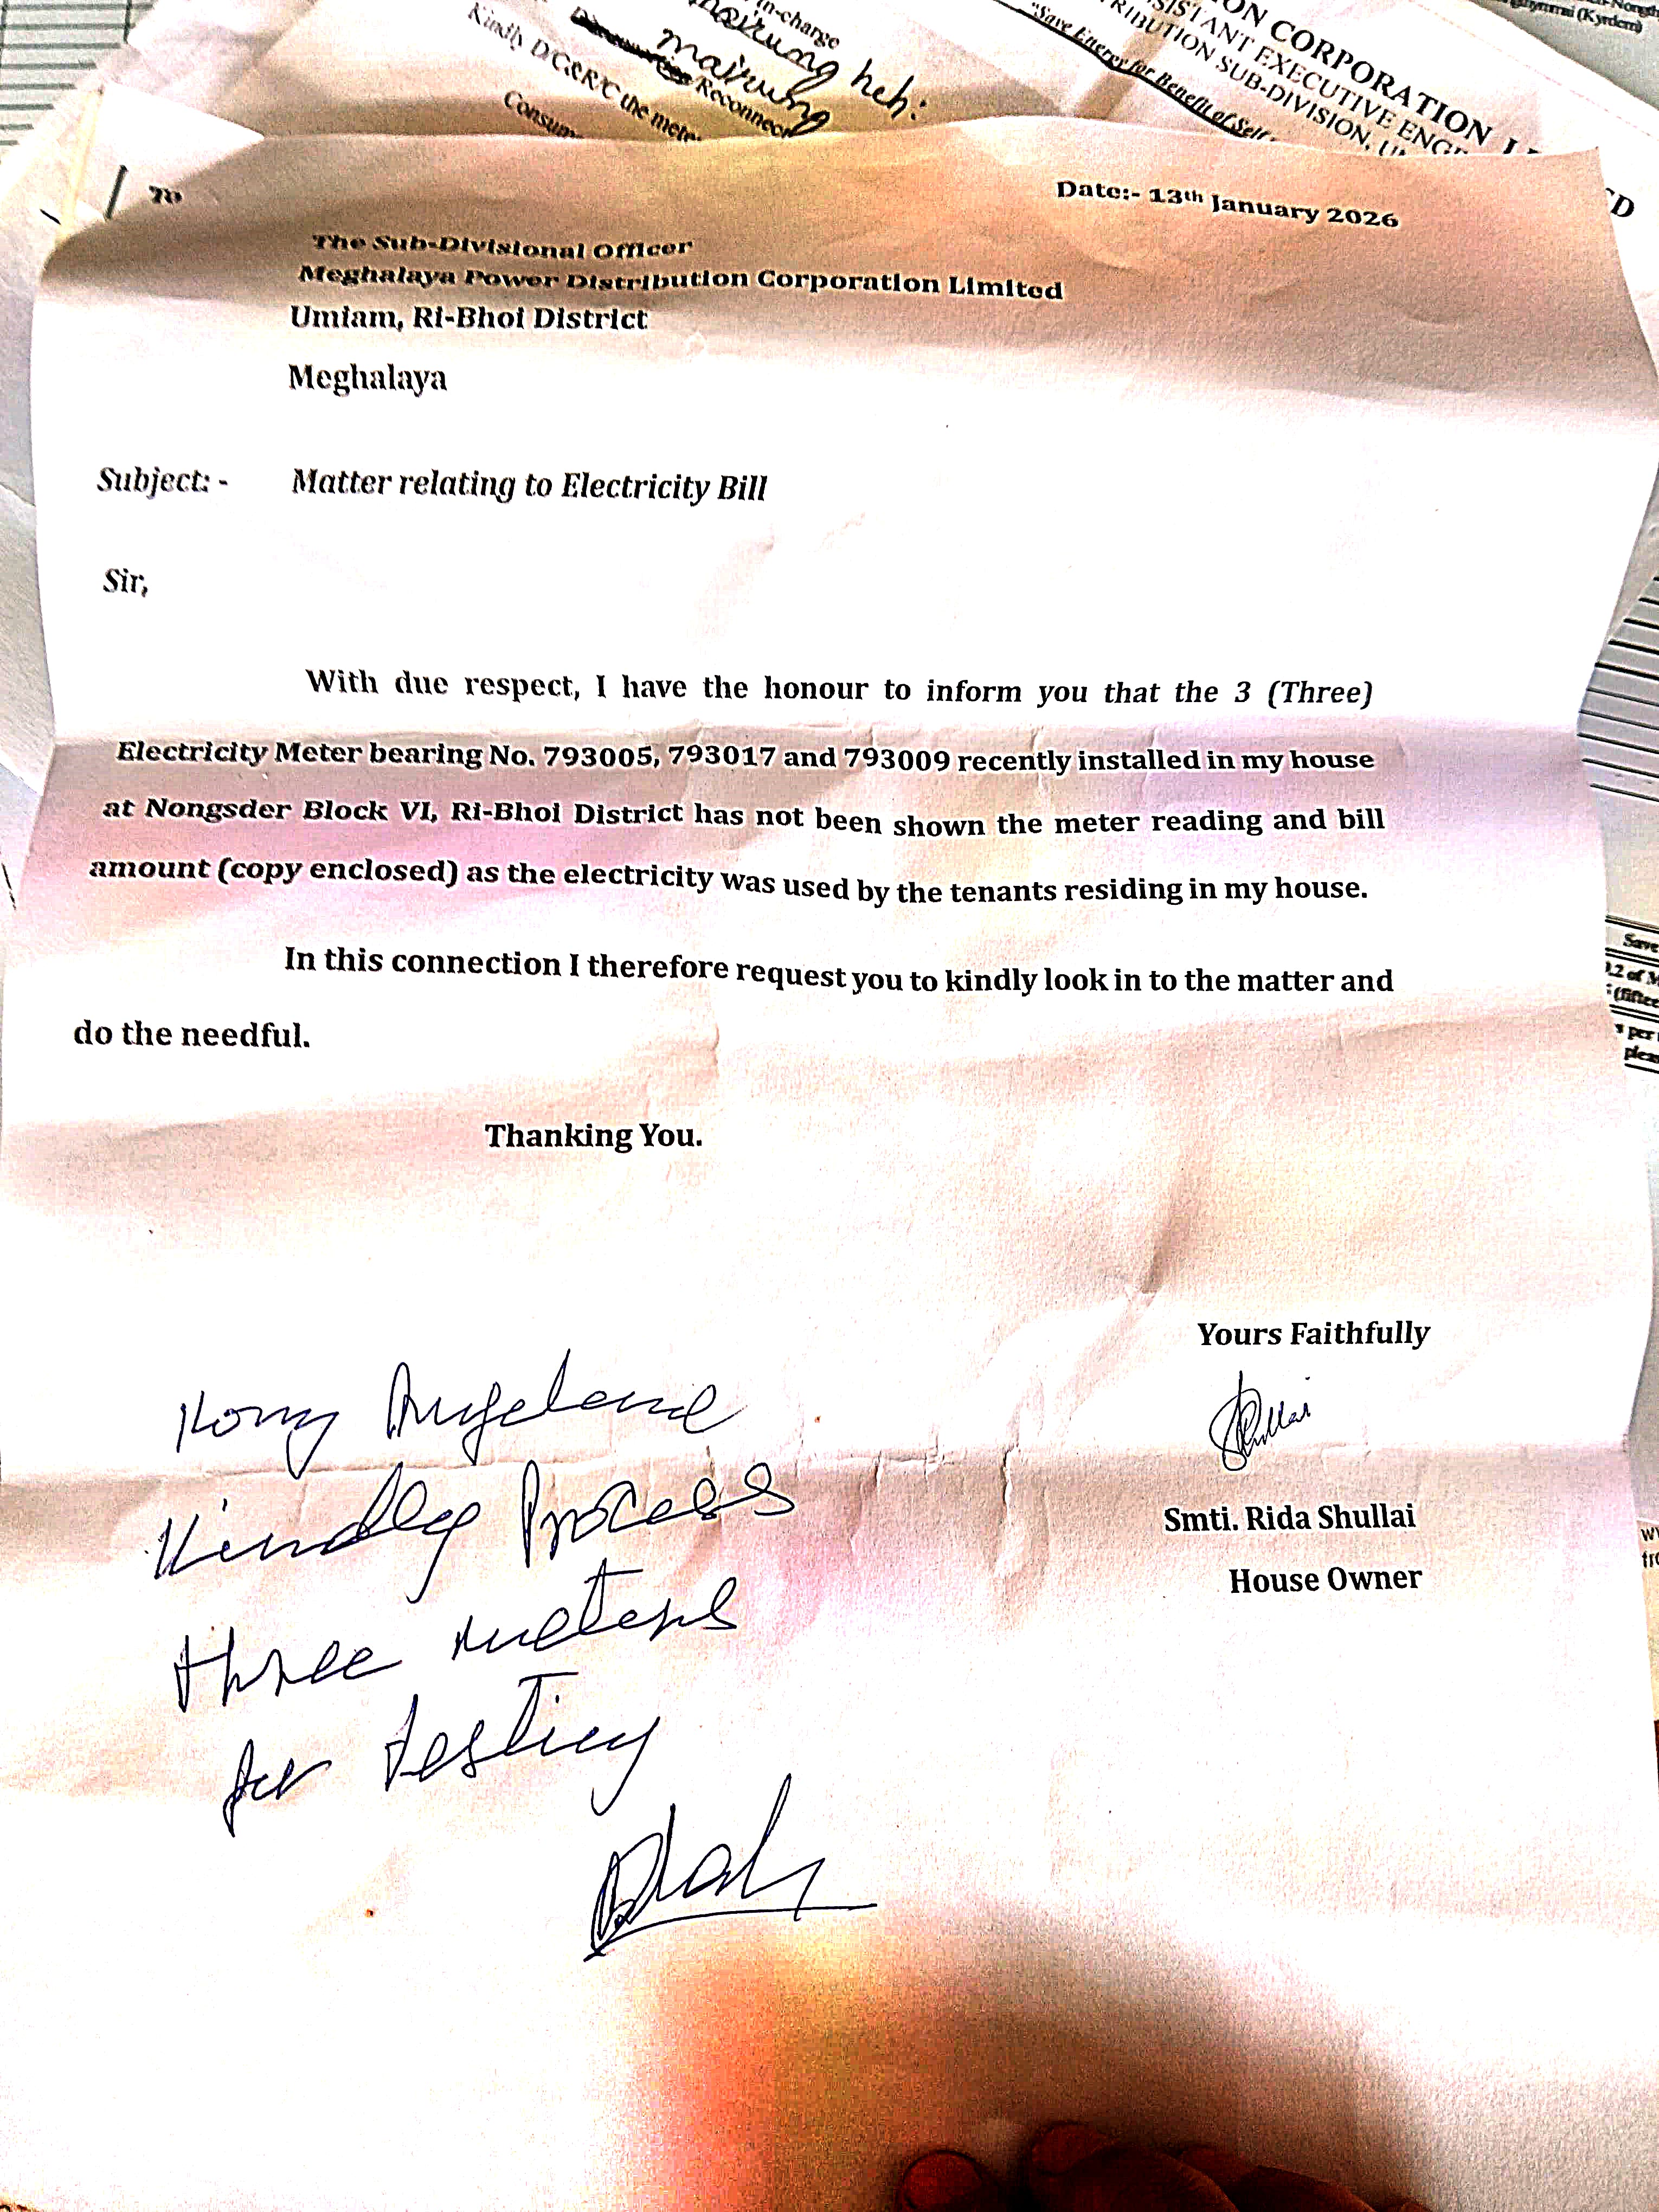 in-charge
mairung heh:
mairung
Reconnec
Kindly DC&R/C the mete
Consum
ON CORPORATION
SISTANT EXECUTIVE ENG
TRIBUTION SUB-DIVISION, U
"Save Energy for Benefit of Self
(Kyrdem)
To
Date:- 13th January 2026
The Sub-Divisional Officer
Meghalaya Power Distribution Corporation Limited
Umiam, Ri-Bhoi District
Meghalaya
Subject: - Matter relating to Electricity Bill
Sir,
With due respect, I have the honour to inform you that the 3 (Three)
Electricity Meter bearing No. 793005, 793017 and 793009 recently installed in my house
at Nongsder Block VI, Ri-Bhoi District has not been shown the meter reading and bill
amount (copy enclosed) as the electricity was used by the tenants residing in my house.
In this connection I therefore request you to kindly look in to the matter and
do the needful.
Thanking You.
Yours Faithfully
Shullai
Smti. Rida Shullai
House Owner
Kong Angelene
Kindly Process
three meters
for testing
Save